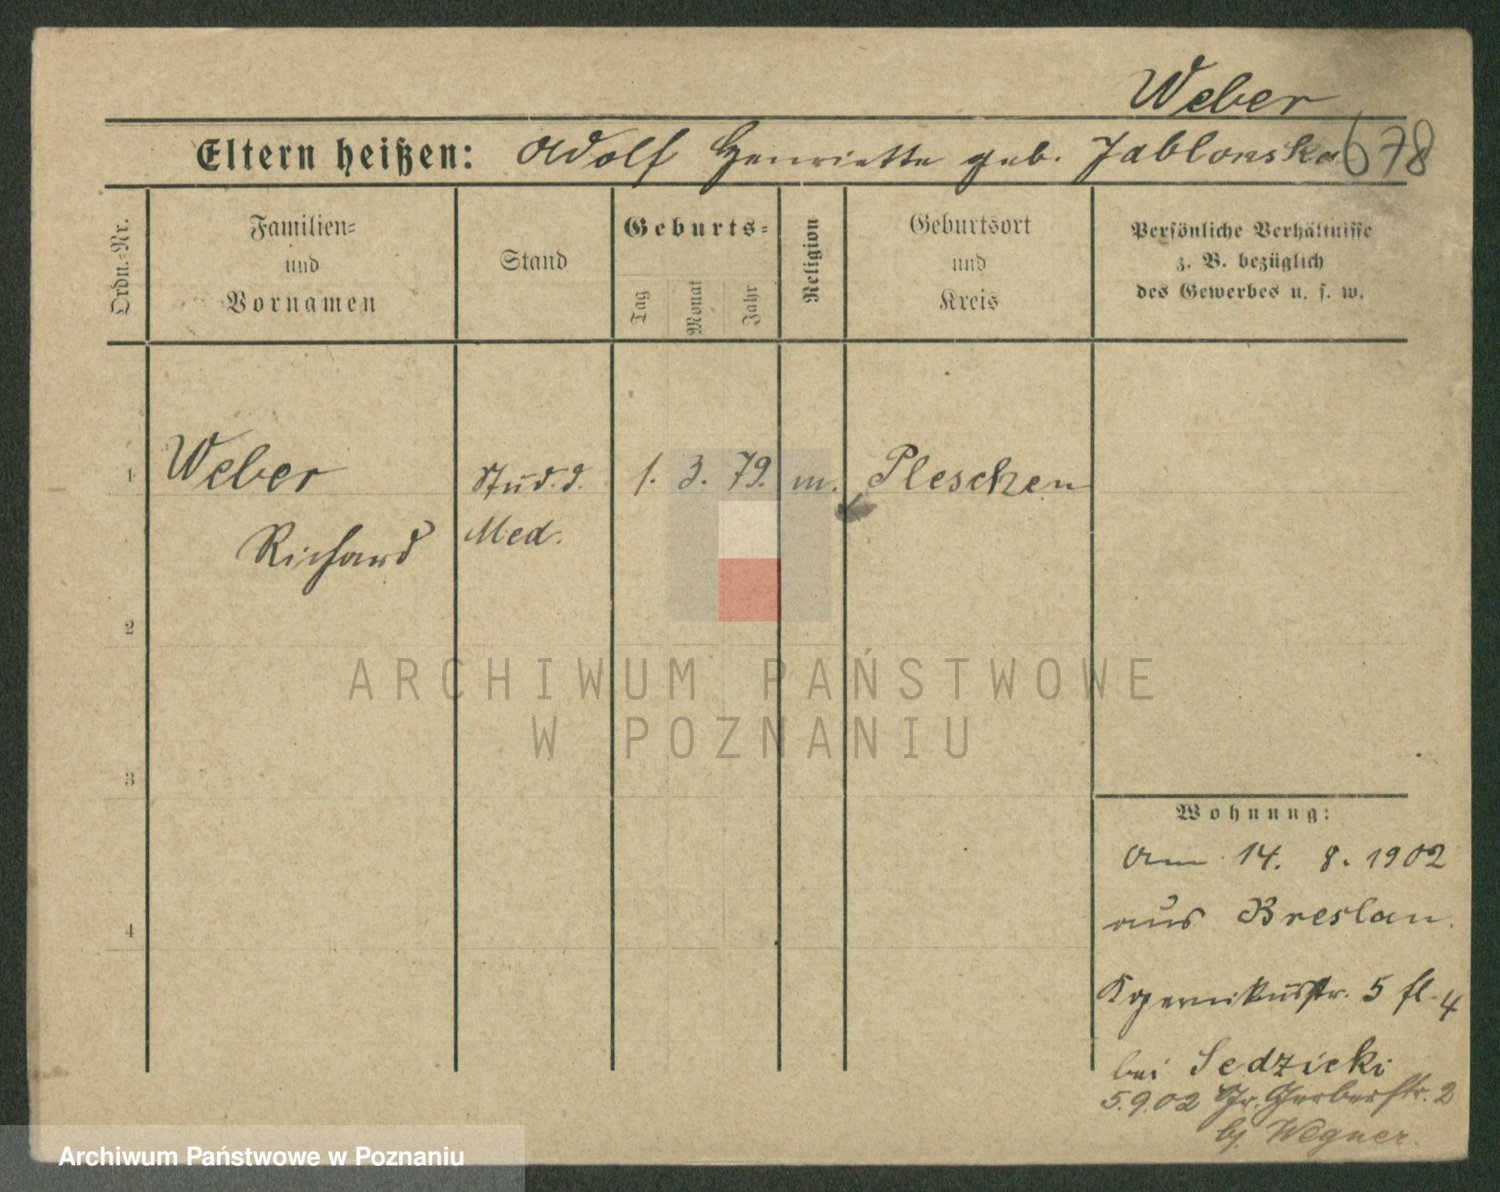 Weber
Eltern heißen: Adolf Henriette geb. Jablonska
678
Ordn.-Nr.
Familien-
und
Vornamen
Stand
Geburts-
Tag
Monat
Jahr
Religion
Geburtsort
und
Kreis
Persönliche Verhältnisse
z. B. bezüglich
des Gewerbes u. s. w.
1 Weber Stud. d. 1. 3. 79. m. Pleschen
Richard Med.
2
3
4
ARCHIWUM PAŃSTWOWE
W POZNANIU
Wohnung:
Am 14. 8. 1902
aus Breslau.
Kopernikusstr. 5 fl. 4
bei Sedzicki
5.9.02 Gr. Gerberstr. 2
bj. Wegner.
Archiwum Państwowe w Poznaniu